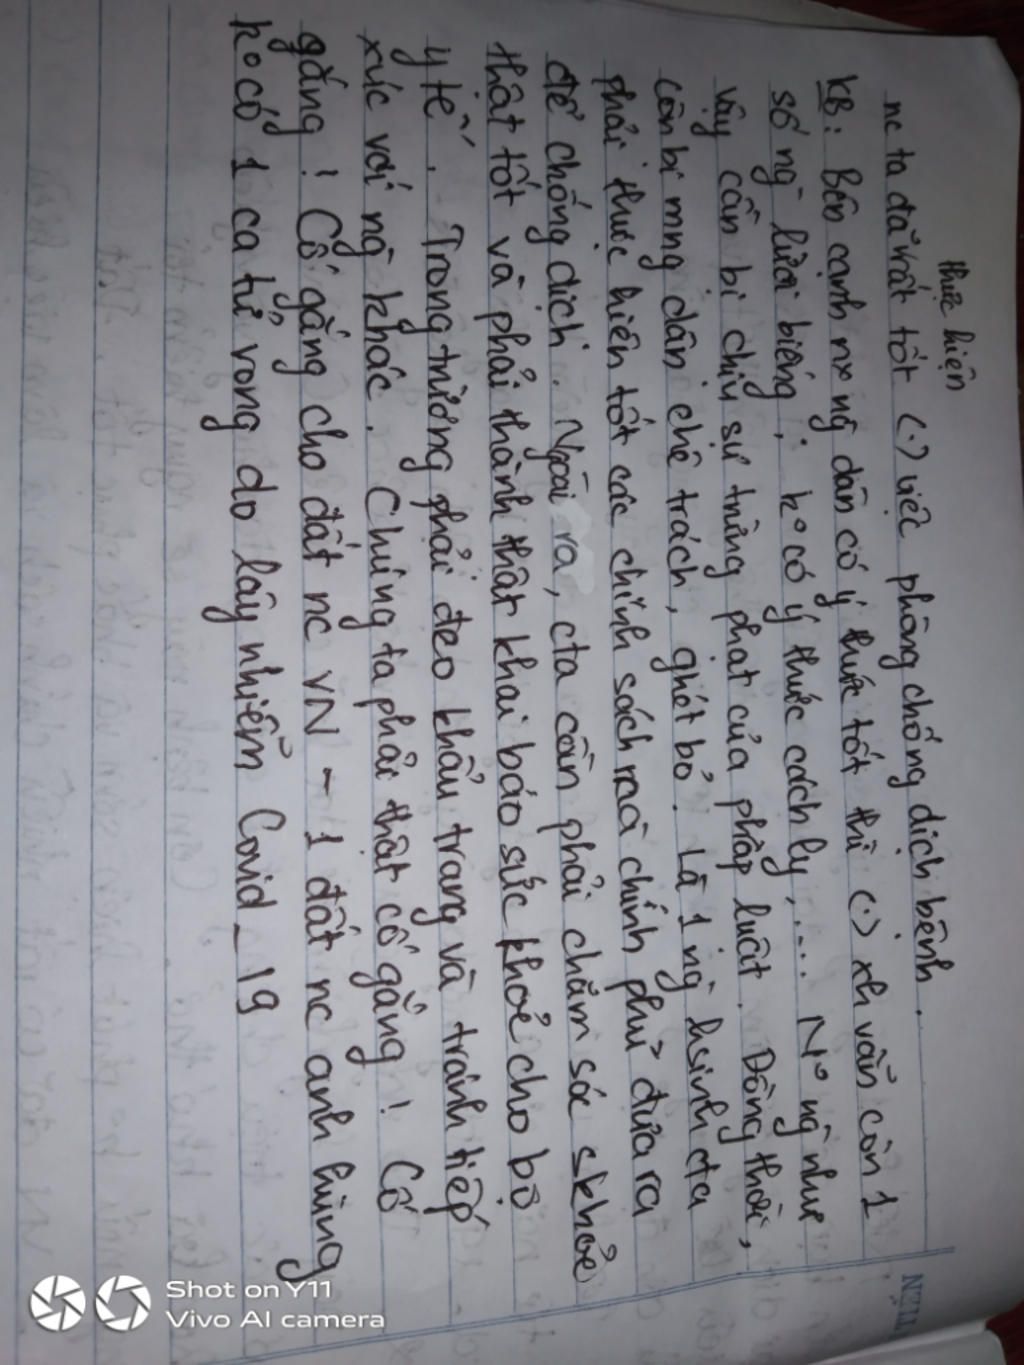 thực hiện
nc ta đã rất tốt (.) việc phòng chống dịch bệnh.
KB: Bên cạnh nx ng dân có ý thức tốt thì (.) xh vẫn còn 1
số ng` lười biếng, ko có ý thức cách ly,.... No ng` như
vậy cần bị chịu sự trừng phạt của pháp luật. Đồng thời,
còn bị mng dân chê trách, ghét bỏ. Là 1 ng` hsinh cta
phải thực hiện tốt các chính sách mà chính phủ đưa ra
để chống dịch. Ngoài ra, cta cần phải chăm sóc skhỏe
thật tốt và phải thành thật khai báo sức khoẻ cho bộ
y tế. Trong trường phải đeo khẩu trang và tránh tiếp
xúc với ng` khác. Chúng ta phải thật cố gắng! Cố
gắng! Cố gắng cho đất nc VN - 1 đất nc anh hùng
ko có 1 ca tử vong do lây nhiễm Covid_19
Shot on Y11
Vivo AI camera